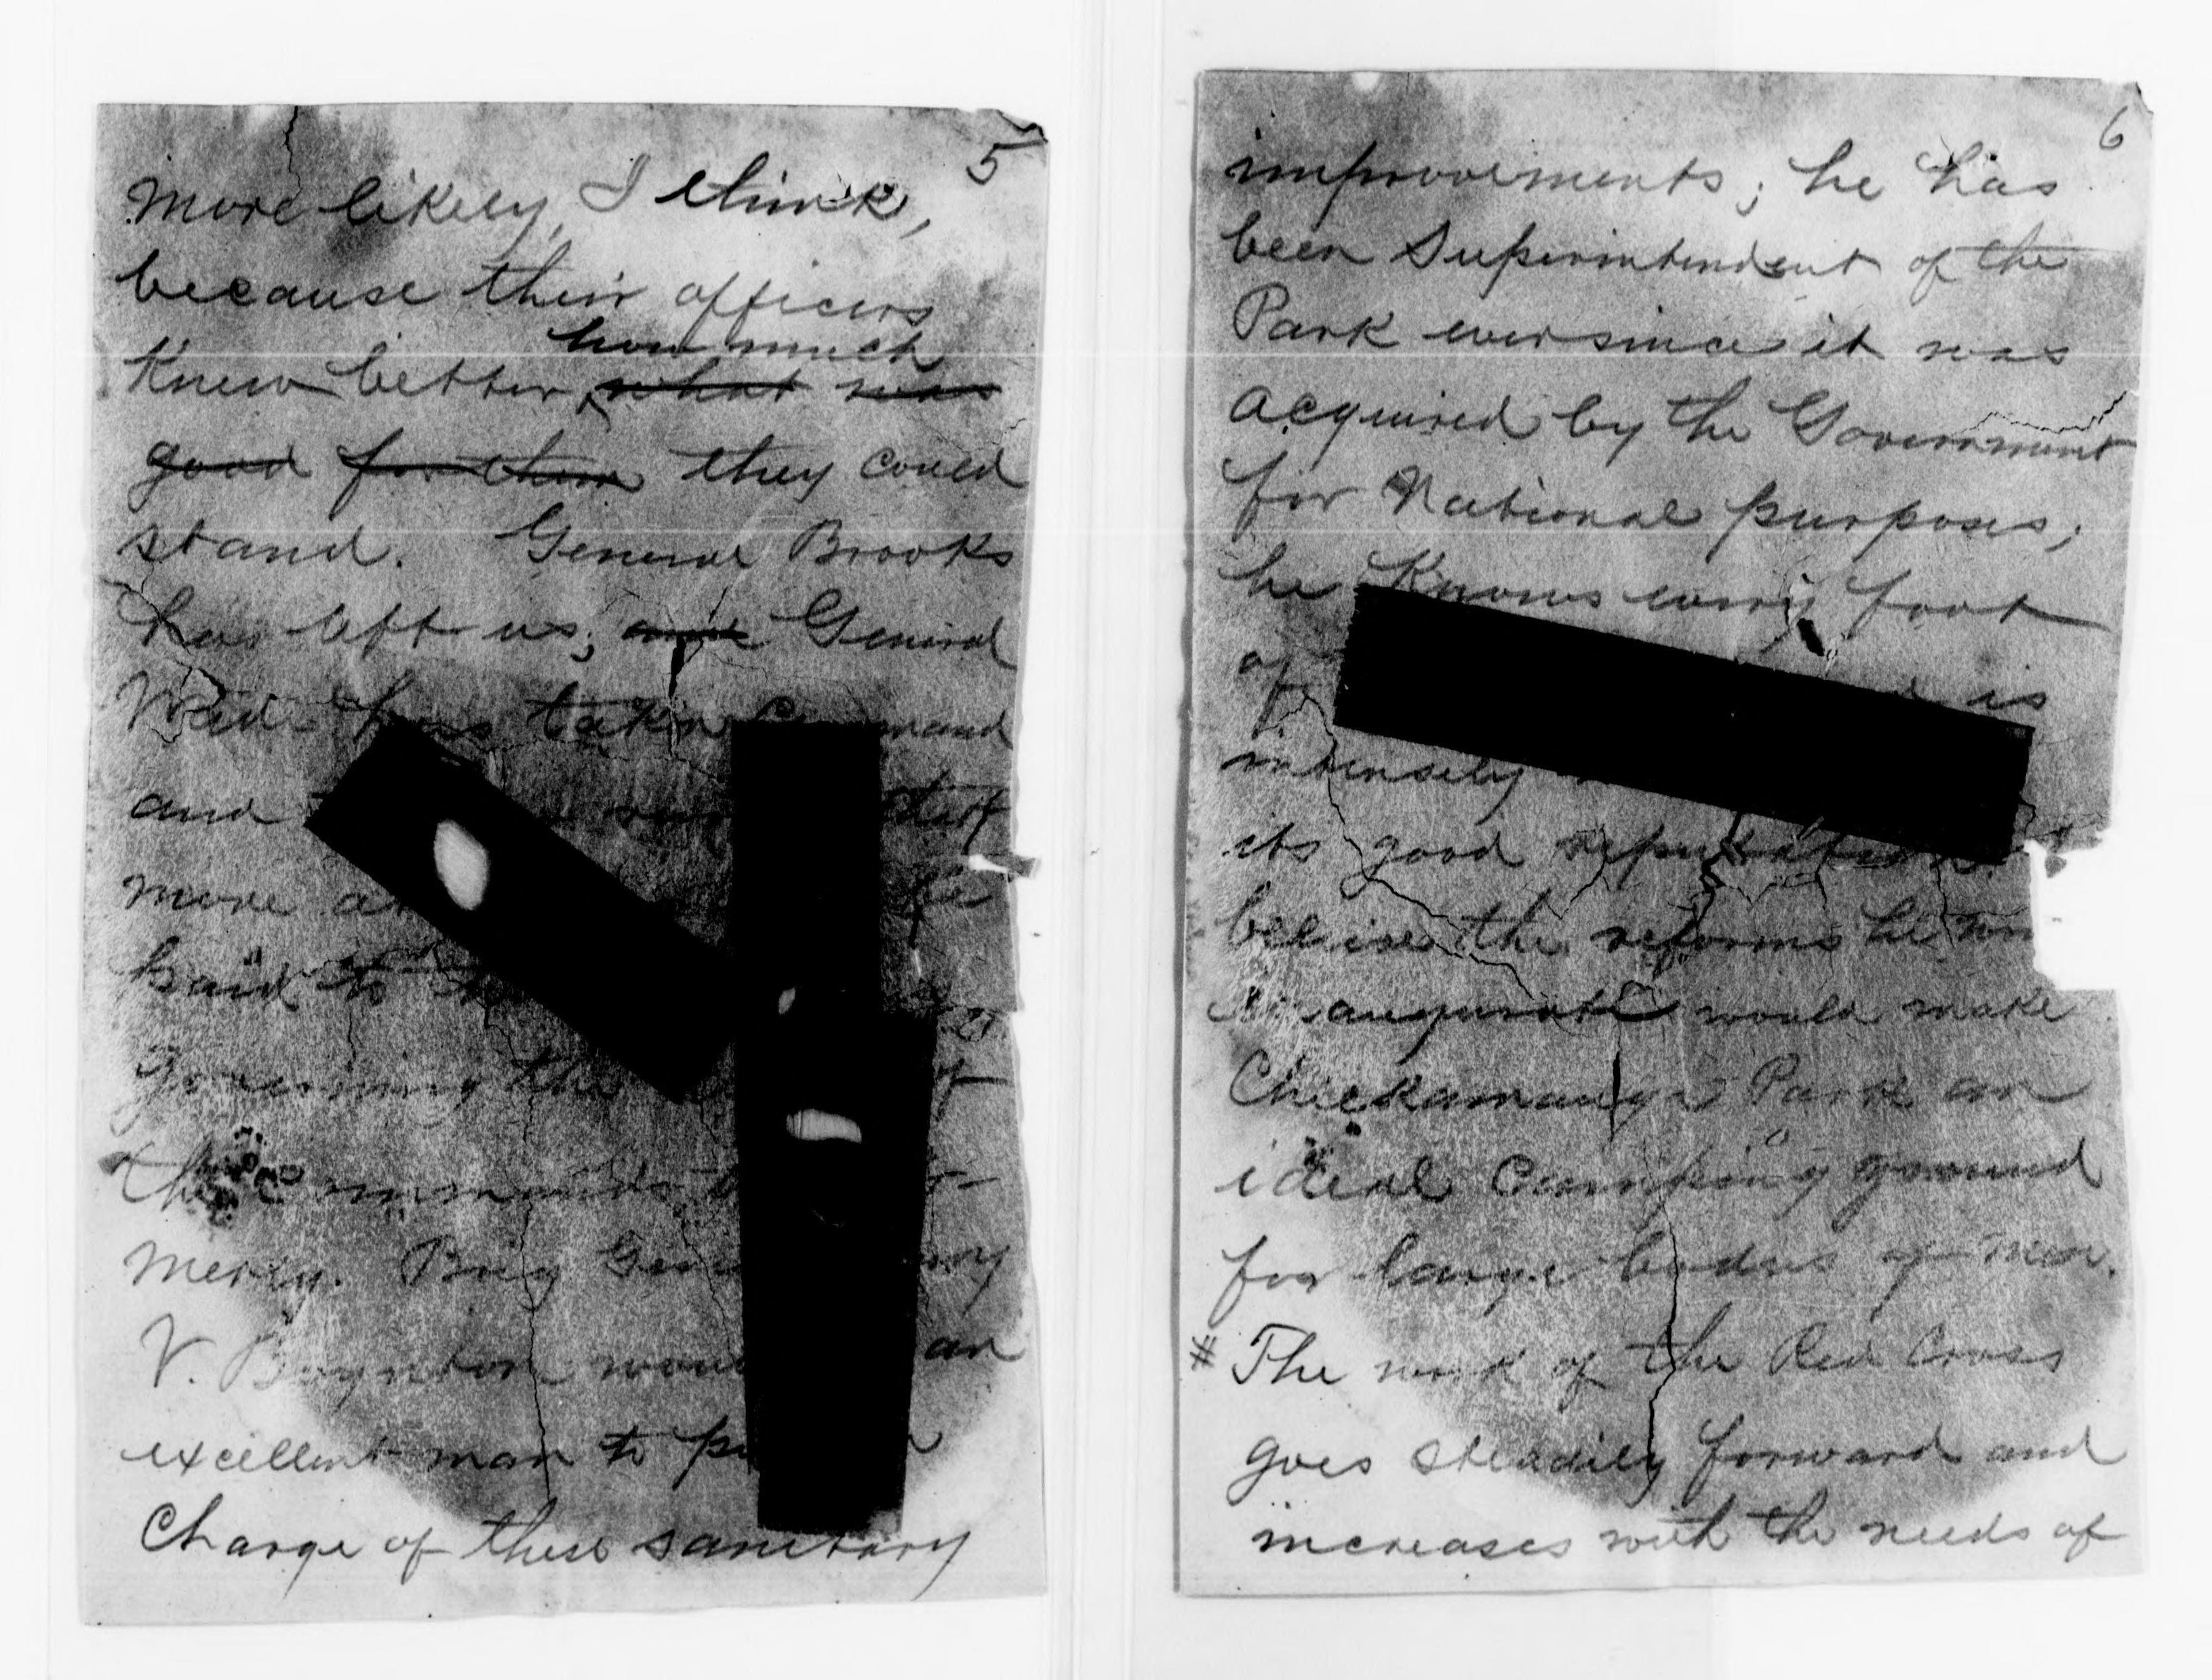 5
more likely, I think,
because their officers
how much
Knew better what was
good for them they could
stand. General Brooks
has left us; and General
Wade has taken Command
and
more
said to
governing the of
the Commands
mercy. Brig Gen
V. Boynton would an
excellent man to
Charge of these sanitary
6
improvements; he has
been Superintendent of the
Park ever since it was
acquired by the Government
for National purposes;
he Knows every foot
of is
intensely
its good reputation
believe the reforms he
inaugurate would make
Chickamauga Park an
ideal Camping ground
for large bodies of men.
# The work of the Red Cross
goes steadily forward and
increases with the needs of